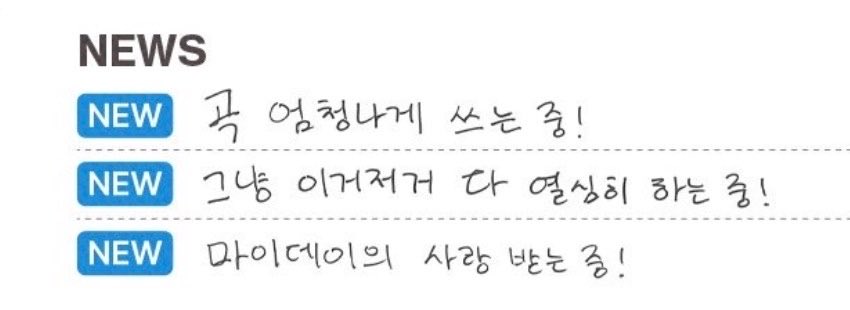 NEWS
NEW 곡 엄청나게 쓰는 중!
NEW 그냥 이거저거 다 열심히 하는 중!
NEW 마이데이의 사랑 받는 중!